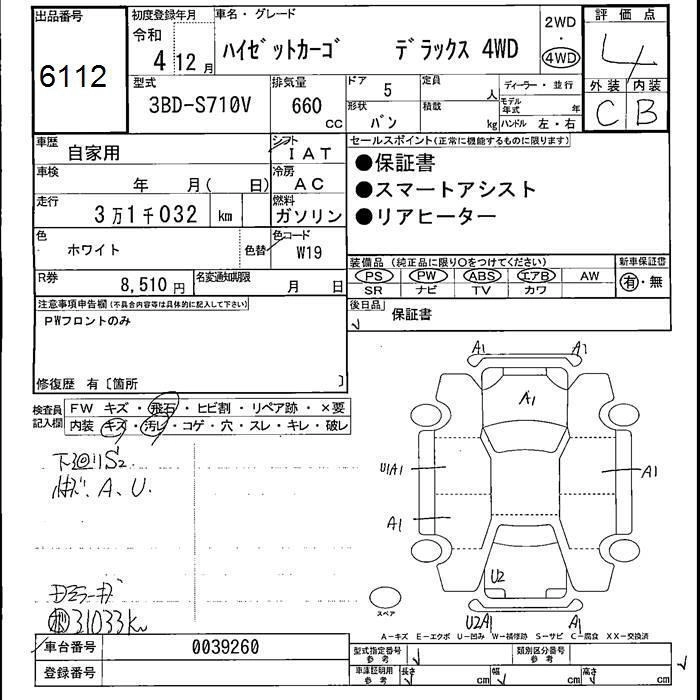 出品番号
6112
初度登録年月
令和
4 12 月
車名・グレード
ハイゼットカーゴ デラックス 4WD
2WD
・
4WD
評価点
4
外装 内装
C B
型式
3BD-S710V
排気量
660
CC
ドア
5
定員
人
形状
バン
積載
kg
ディーラー・並行
モデル
年式 年
ハンドル 左・右
車歴
自家用
シフト
IAT
車検
年 月( 日)
冷房
AC
走行
3万1千032 km
燃料
ガソリン
色
ホワイト
色替
色コード
W19
R券
8,510 円
名変通知期限
月 日
セールスポイント(正常に機能するものに限ります)
●保証書
●スマートアシスト
●リアヒーター
装備品(純正品に限り○をつけてください)
新車保証書
PS PW ABS エアB AW
SR ナビ TV カワ
有・無
後日品
保証書
注意事項申告欄(不具合内容等は具体的に記入して下さい)
PWフロントのみ
修復歴 有〔箇所 〕
検査員
記入欄
FW キズ・飛石・ヒビ割・リペア跡・×要
内装 キズ・汚レ・コゲ・穴・スレ・キレ・破レ
下廻りS2
A、U.
31033km
A1 A1
A1
U1A1
A1
A1
U2
U2A1
A1
スペア
A-キズ E-エクボ U-凹み W-補修跡 S-サビ C-腐食 XX-交換済
車台番号
0039260
登録番号
型式指定番号
参考
類別区分番号
参考
車庫証明用
参考
長さ cm
幅 cm
高さ cm